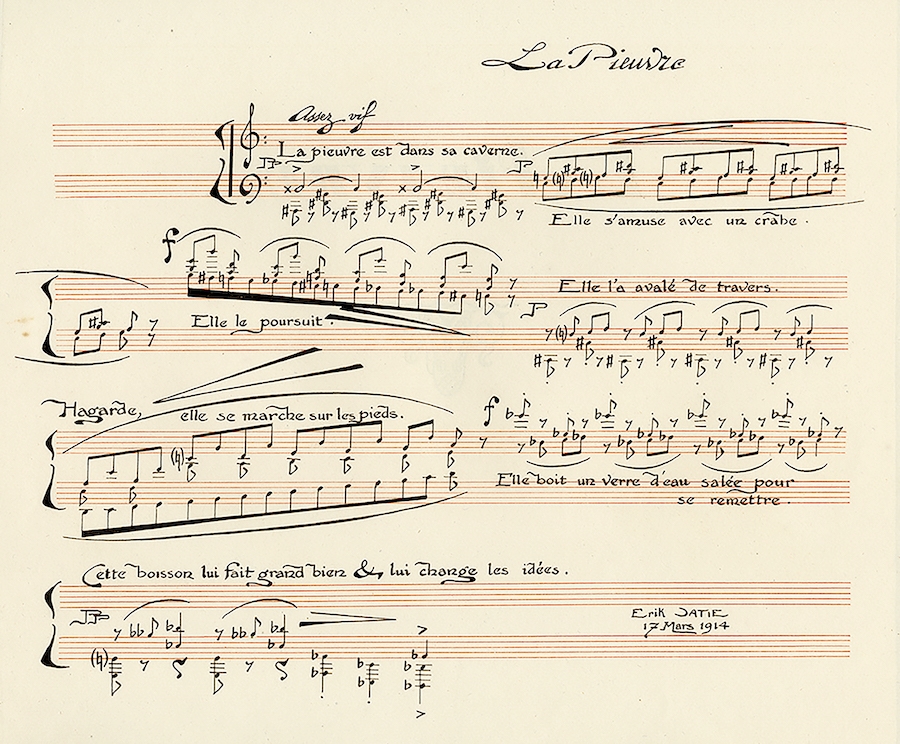 La Pieuvre
Assez vif
La pieuvre est dans sa caverne.
pp
p
Elle s'amuse avec un crabe.
f
Elle le poursuit.
Elle l'a avalé de travers.
p
Hagarde, elle se marche sur les pieds.
f
Elle boit un verre d'eau salée pour
se remettre.
Cette boisson lui fait grand bien & lui change les idées.
pp
Erik SATIE
17 Mars 1914